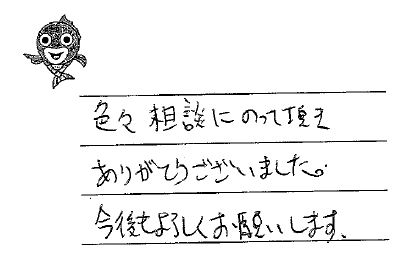 色々 相談にのって頂き
ありがとうございました。
今後もよろしくお願いします。